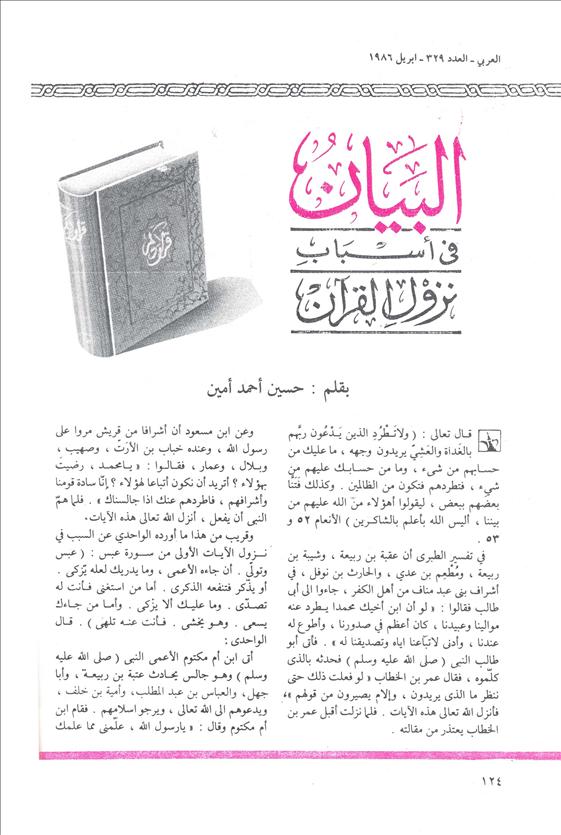 العربي - العدد ٣٢٩ - ابريل ١٩٨٦
البيان
فى أسباب
نزول القرآن
قرآن كريم
قرآن كريم
بقلم : حسين أحمد أمين
قال تعالى : ( ولاتَطْرُدِ الذين يَدْعُون ربَّهم
بالغَداة والعَشِيّ يريدون وجهه ، ما عليك من
حسابهم من شىء ، وما من حسابك عليهم من
شيء ، فتطردهم فتكون من الظالمين . وكذلك فَتَنَّا
بعضهم ببعض ، ليقولوا أهؤلاء منَّ الله عليهم من
بيننا ، أليس الله بأعلم بالشاكرين ) الأنعام ٥٢ و
٥٣ .
فى تفسير الطبرى أن عقبة بن ربيعة ، وشيبة بن
ربيعة ، ومُطْعِم بن عدي ، والحارث بن نوفل ، في
أشراف بنى عبد مناف من أهل الكفر ، جاءوا الى أبى
طالب فقالوا : « لو أن ابن أخيك محمدا يطرد عنه
موالينا وعبيدنا ، كان أعظم في صدورنا ، وأطوع له
عندنا ، وأدنى لاتباعنا اياه وتصديقنا له » . فأتى أبو
طالب النبى ( صلى الله عليه وسلم ) فحدثه بالذى
كلّموه ، فقال عمر بن الخطاب « لو فعلت ذلك حتى
ننظر ما الذى يريدون ، وإلام يصيرون من قولهم »،
فأنزل الله تعالى هذه الآيات . فلما نزلت أقبل عمر بن
الخطاب يعتذر من مقالته .
وعن ابن مسعود أن أشرافا من قريش مروا على
رسول الله ، وعنده خباب بن الأرَتّ ، وصهيب ،
وبلال ، وعمار ، فقالوا : « يامحمد ، رضيتَ
بهؤلاء ؟ أتريد أن نكون أتباعا لهؤلاء ؟ إنّا سادة قومنا
وأشرافهم ، فاطردهم عنك اذا جالسناك » . فلما همّ
النبى أن يفعل ، أنزل الله تعالى هذه الآيات.
وقريب من هذا ما أورده الواحدي عن السبب في
نزول الآيات الأولى من سورة عبس : ( عبس
وتولّي . أن جاءه الأعمى ، وما يدريك لعله يزّكى .
أو يذّكر فتنفعه الذكرى . أما من استغنى فأنت له
تصدّى . وما عليك ألا يزّكى . وأما من جاءك
يسعى . وهو يخشى . فأنت عنه تلهى ) . قال
الواحدى :
أتى ابن أم مكتوم الأعمى النبى ( صلى الله عليه
وسلم ) وهو جالس يحادث عتبة بن ربيعة ، وأبا
جهل، والعباس بن عبد المطلب، وأمية بن خلف ،
ويدعوهم الى الله تعالى ، ويرجو اسلامهم . فقام ابن
أم مكتوم وقال : « يارسول الله ، علّمنى مما علمك
١٢٤